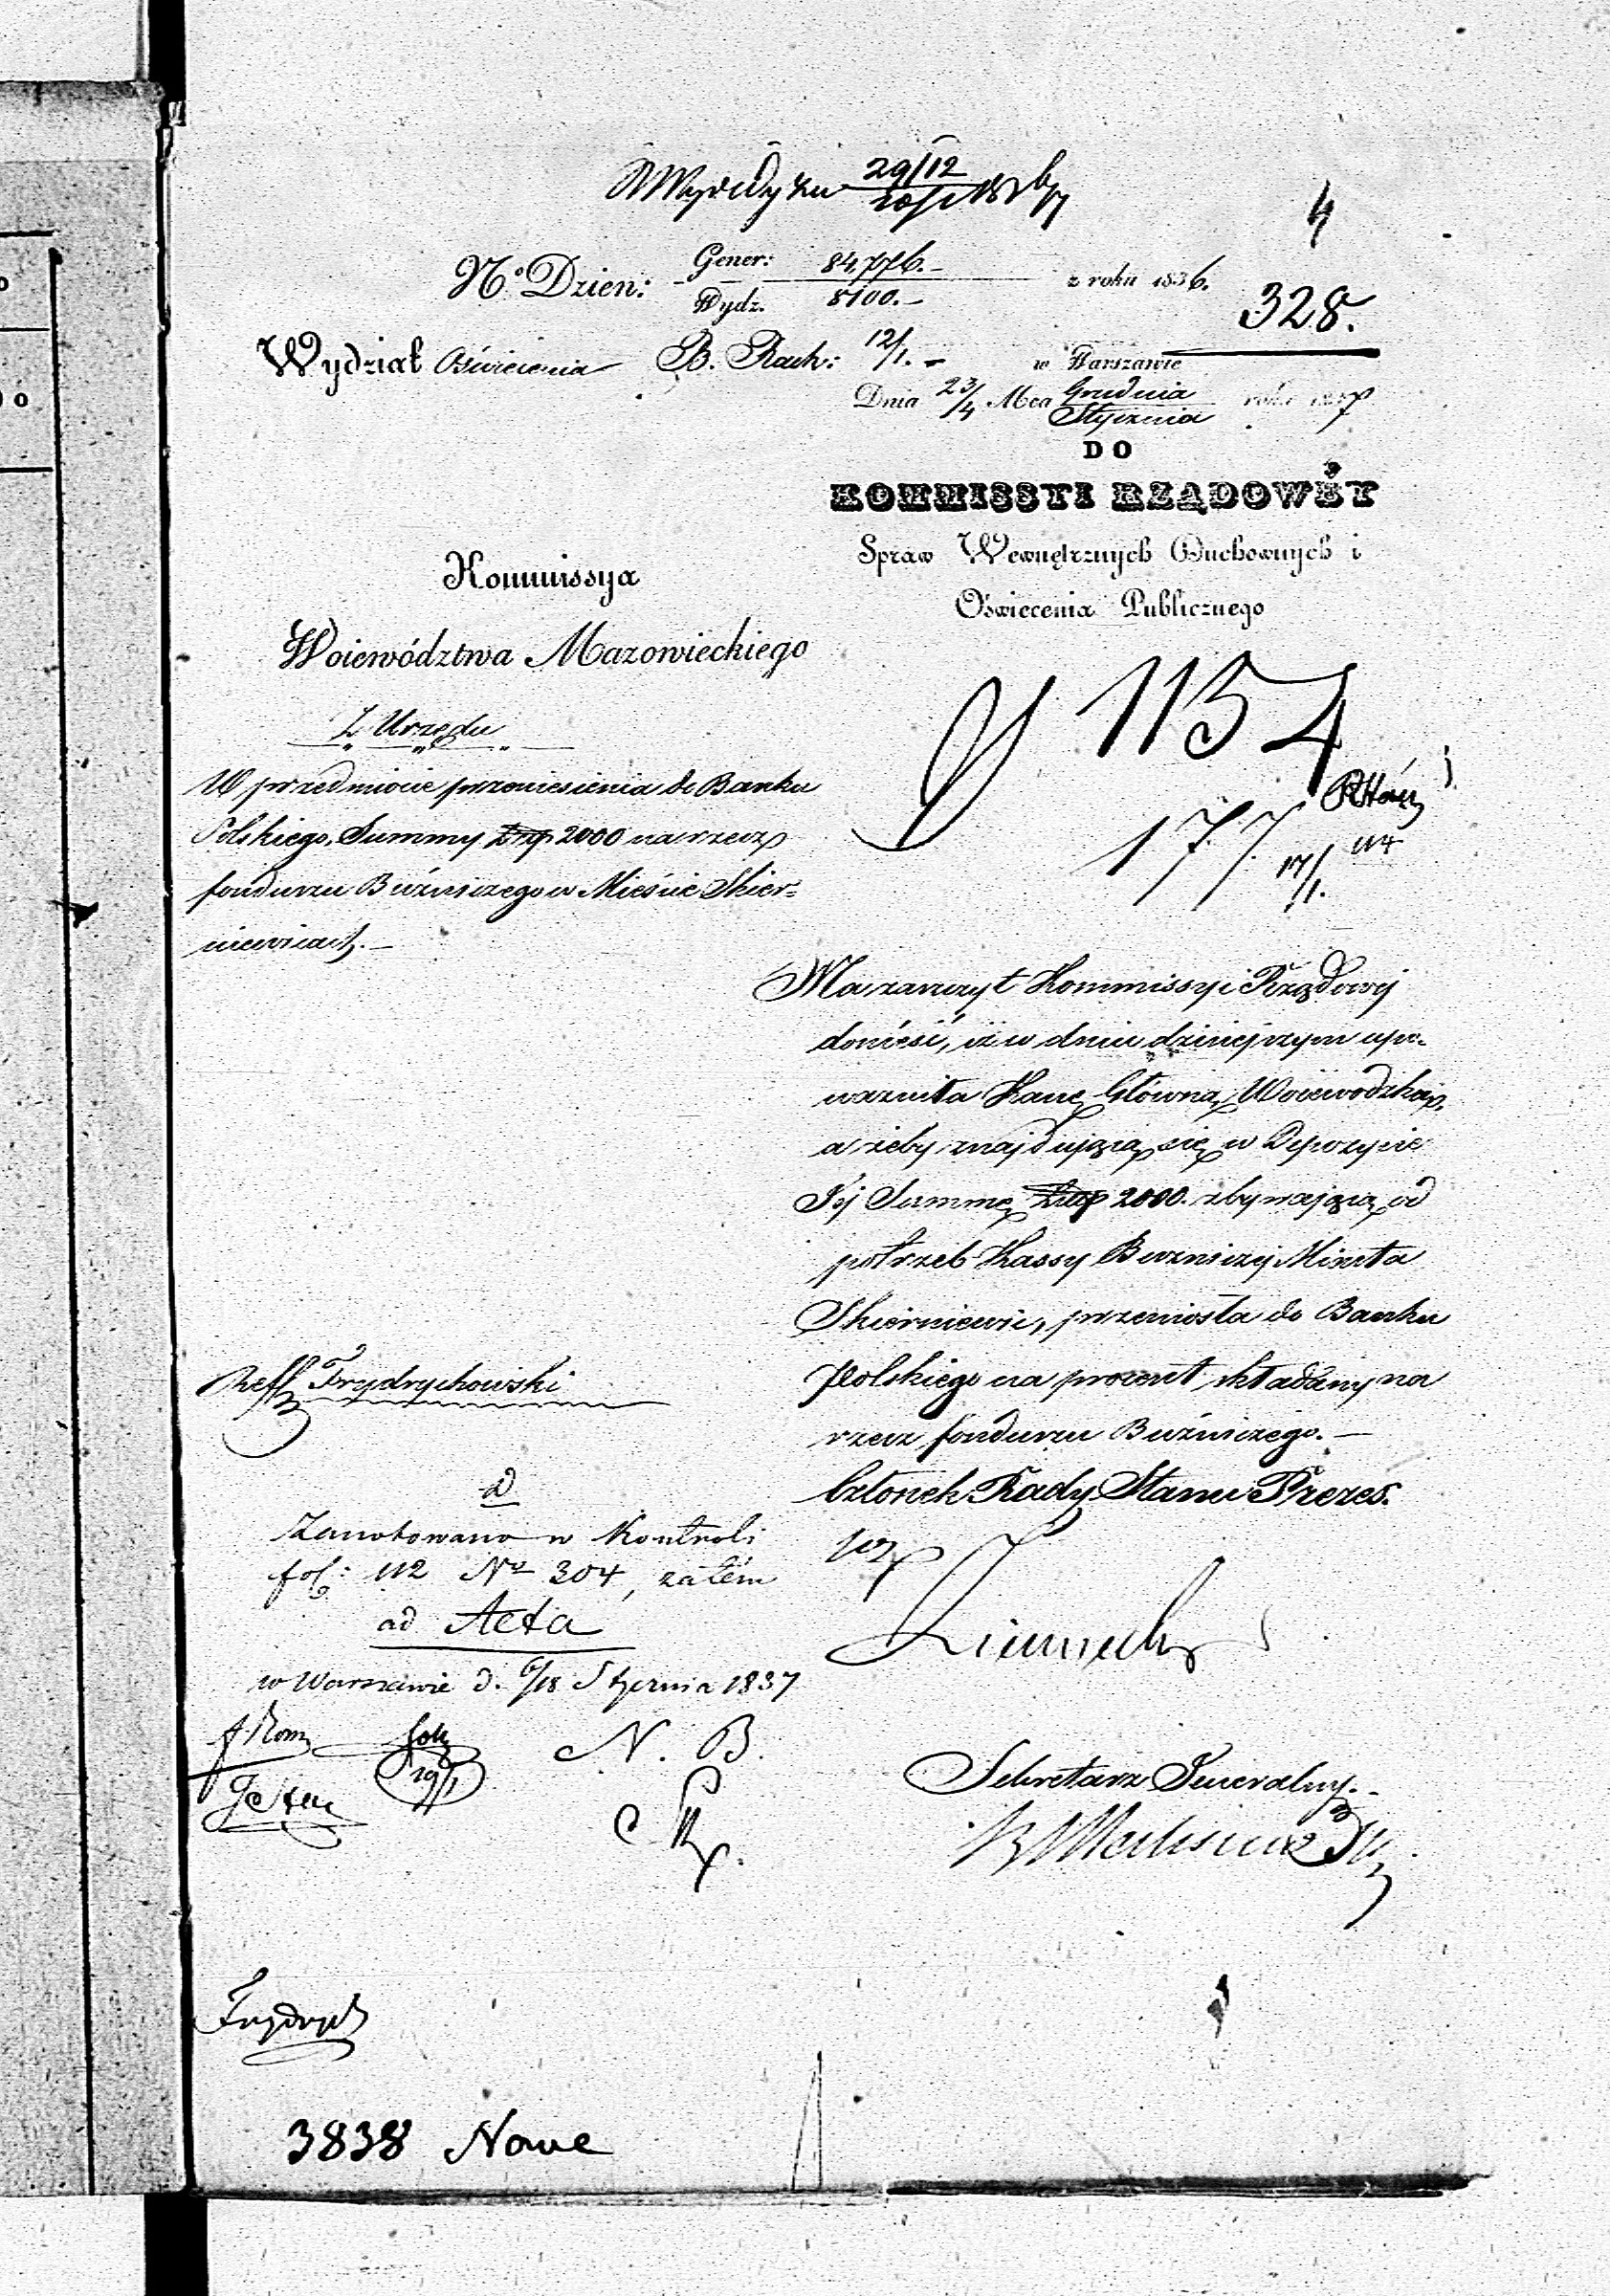 29/12
4
No Dzien: Gener: 84,776.- z roku 1836.
Wydz. 8100.-
328.
Wydział Oświecenia B. Rach: 12/1. - w Warszawie
Dnia 23/4 Mca Grudnia Stycznia roku 1837
DO
KOMMISSYI RZĄDOWÉY
Spraw Wewnętrznych Duchownych i
Oświecenia Publicznego
Kommissya
Woiewództwa Mazowieckiego
Z Urzędu
W przedmiocie przeniesienia do Banku
Polskiego, Summy Złp 2000 na rzecz
funduszu Bóźniczego w Mieście Skier=
niewicach. —
1154
177
17/1.
Ma zaszczyt Kommissyi Rządowej
donieść, iż w dniu dzisiejszym upo-
ważniła Kassę Główną Wojewodzką,
ażeby znajdującą się w Depozycie
Jej Summę Złp 2000. zbywającą od
potrzeb Kassy Bużniczej Miasta
Skierniewic, przeniosła do Banku
Polskiego na procent składany na
rzecz funduszu Bużniczego. —
Członek Rady Stanu Prezes.
Reff Frydrychowski
Zanotowano w Kontroli
fol: 112 No 304, zatém
ad Acta
w Warszawie d. 6/18 Stycznia 1837
N. B.
19/1
Sekretarz Jeneralny.
Frydrych
3838 Nowe